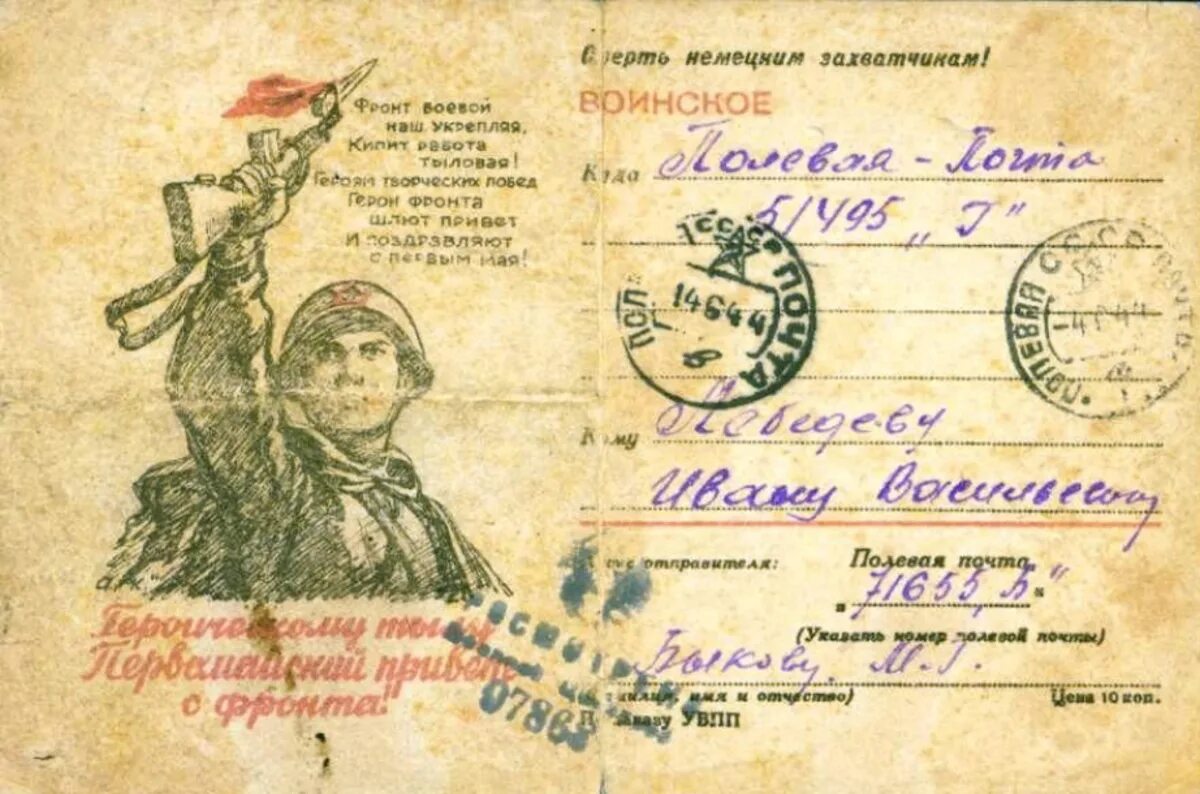 Фронт боевой
наш укрепляя,
Кипит работа
тыловая!
Героям творческих побед
Герои фронта
шлют привет
И поздравляют
с первым мая!
Героическому тылу
Первомайский привет
с фронта!
Смерть немецким захватчикам!
ВОИНСКОЕ
Куда Полевая - Почта
51495 „Г"
СССР ПОЧТА
14 6 44
ПОЛЕВАЯ СССР ПОЧТА
-4 44
Кому Лебедеву
Ивану Васильевичу
отправителя: Полевая почта
„71655 Б"
(Указать номер полевой почты)
Быкову М. Г.
имя и отчество) Цена 10 коп.
УВПП
0786